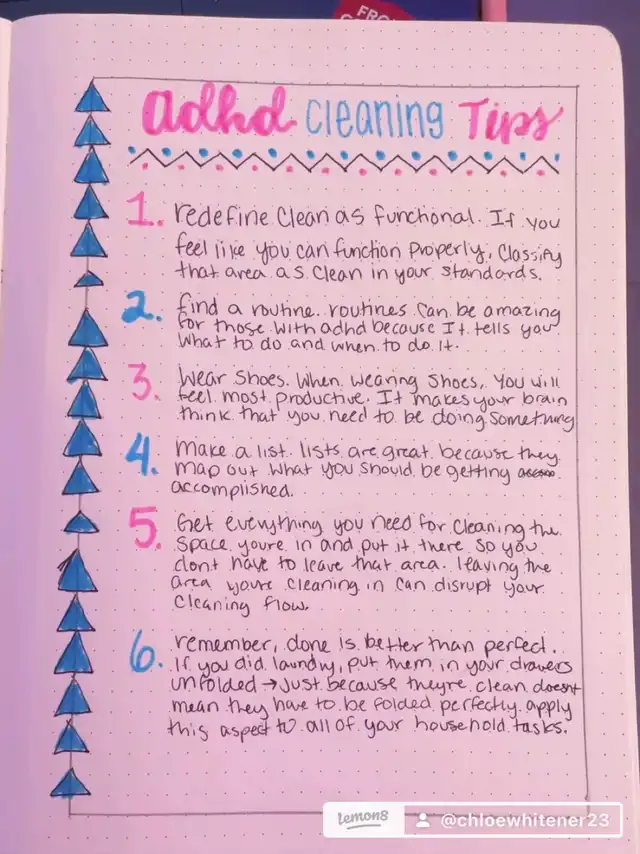 FRO
adhd cleaning Tips
1. redefine clean as functional. If you
feel like you can function properly, classify
that area as clean in your standards.
2. find a routine. routines can be amazing
for those with adhd because It tells you
what to do and when to do it.
3. Wear shoes. When wearing shoes, you will
feel most productive. It makes your brain
think that you need to be doing something
4. make a list. lists are great because they
map out what you should be getting
accomplished.
5. Get everything you need for cleaning the
space youre in and put it there so you
dont have to leave that area. leaving the
area youre cleaning in can disrupt your
cleaning flow.
6. remember, done is better than perfect.
If you did laundry, put them in your drawers
unfolded → Just because theyre clean doesnt
mean they have to be folded perfectly. apply
this aspect to all of your household tasks.
lemon8 @chloewhitener23